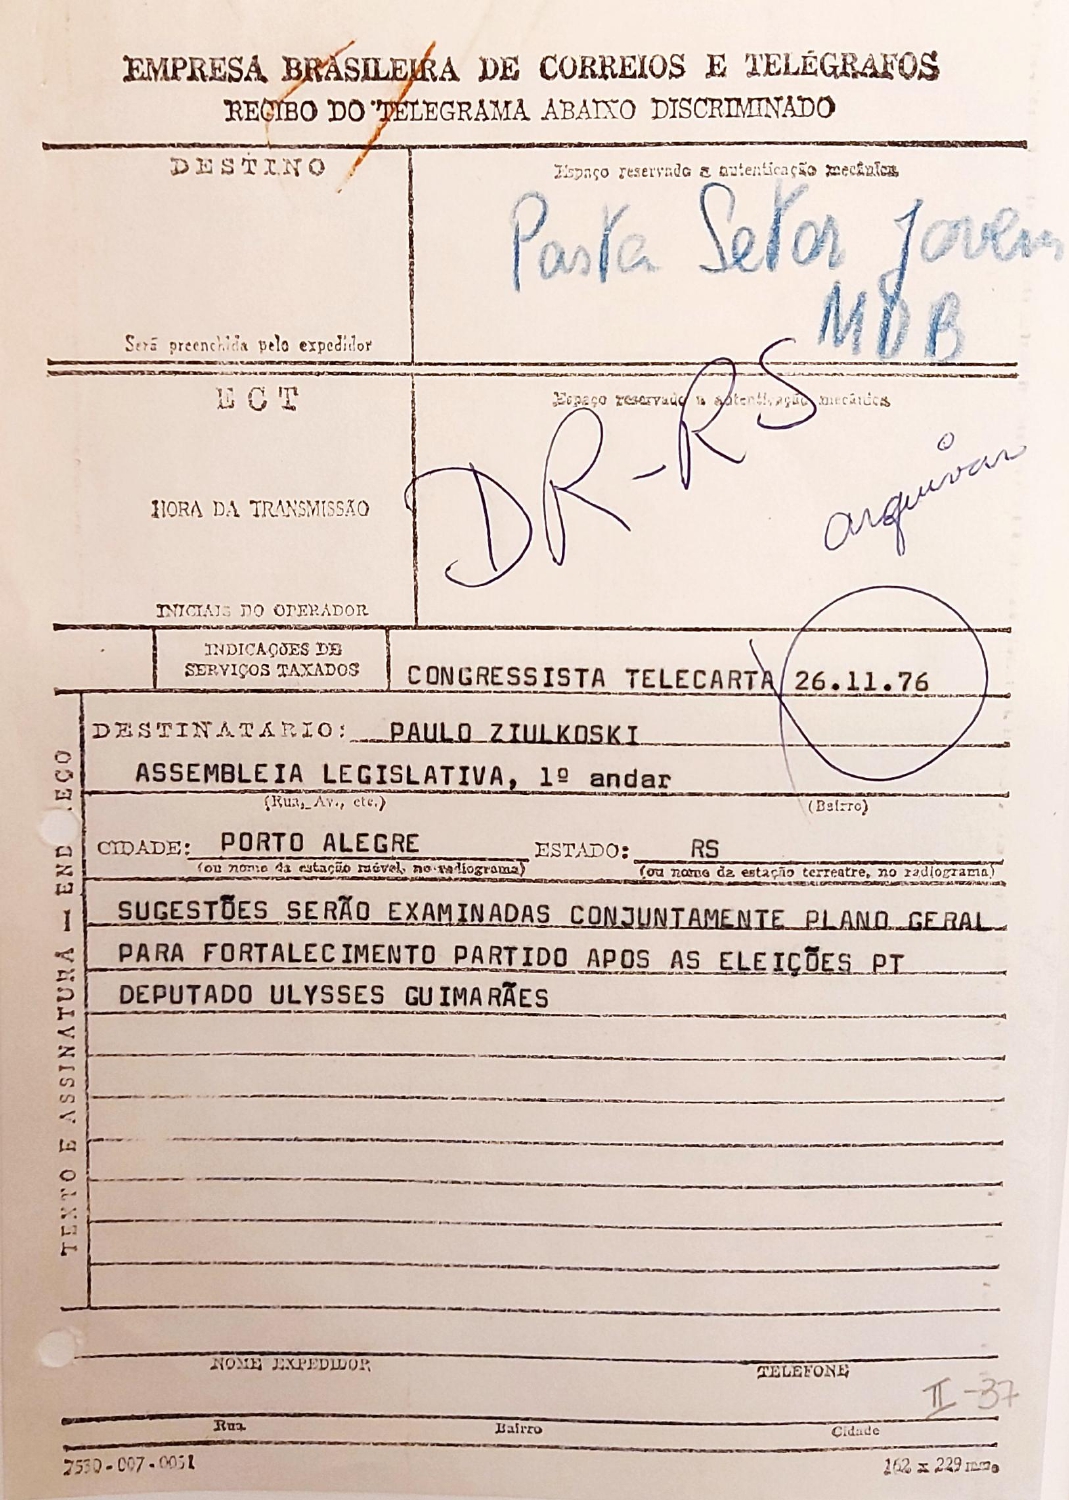 EMPRESA BRASILEIRA DE CORREIOS E TELÉGRAFOS
RECIBO DO TELEGRAMA ABAIXO DISCRIMINADO
DESTINO
Espaço reservado a autenticação mecânica
Pasta Setor Jovem
MDB
Será preenchida pelo expedidor
ECT
Espaço reservado a autenticação mecânica
DR-RS
arquivar
HORA DA TRANSMISSÃO
INICIAIS DO OPERADOR
INDICAÇÕES DE
SERVIÇOS TAXADOS
CONGRESSISTA TELECARTA 26.11.76
DESTINATÁRIO: PAULO ZIULKOSKI
ASSEMBLEIA LEGISLATIVA, 1º andar
(Rua, Av., etc.) (Bairro)
CIDADE: PORTO ALEGRE ESTADO: RS
(ou nome da estação móvel, no radiograma) (ou nome da estação terrestre, no radiograma)
TEXTO E ASSINATURA — ENDEREÇO
SUGESTÕES SERÃO EXAMINADAS CONJUNTAMENTE PLANO GERAL
PARA FORTALECIMENTO PARTIDO APOS AS ELEIÇÕES PT
DEPUTADO ULYSSES GUIMARÃES
NOME EXPEDIDOR TELEFONE
II-37
Rua Bairro Cidade
7530-007-0051 162 x 229 mm.